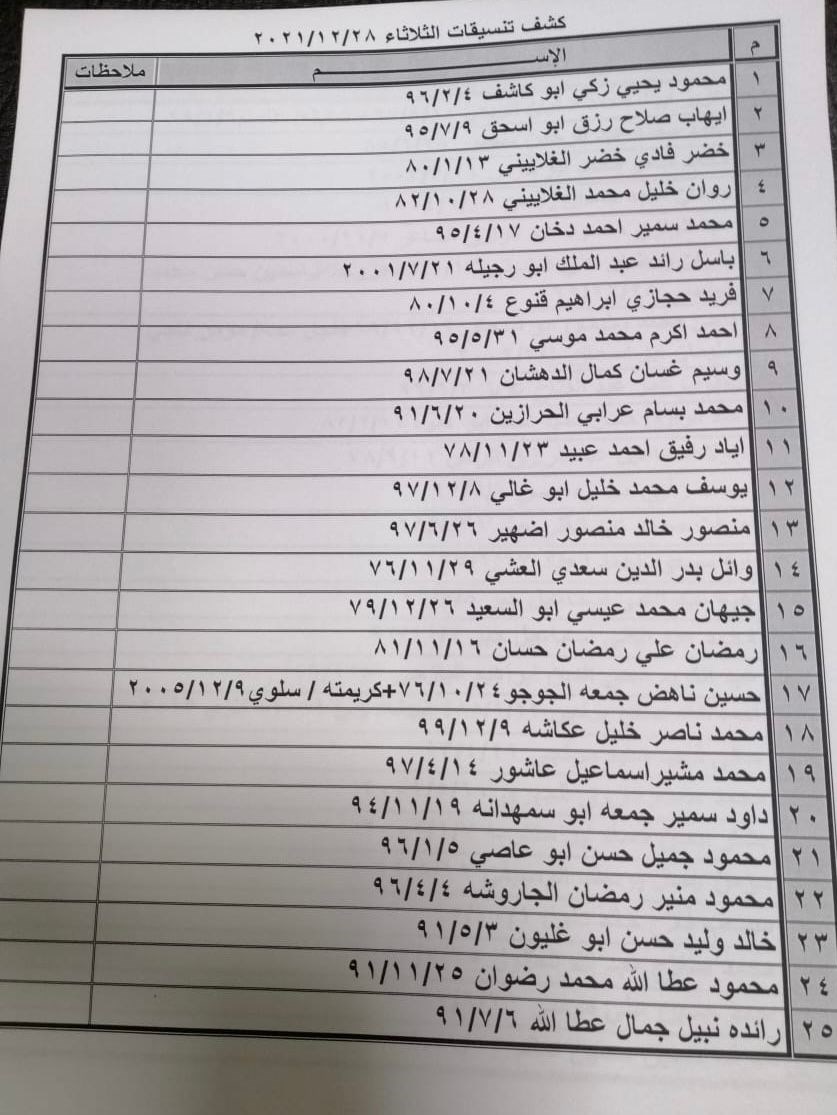 كشف تنسيقات الثلاثاء ٢٠٢١/١٢/٢٨
م الإســـــــــــــــــــم ملاحظات
١ محمود يحيي زكي ابو كاشف ٩٦/٢/٤
٢ ايهاب صلاح رزق ابو اسحق ٩٥/٧/٩
٣ خضر فادي خضر الغلاييني ٨٠/١/١٣
٤ روان خليل محمد الغلاييني ٨٢/١٠/٢٨
٥ محمد سمير احمد دخان ٩٥/٤/١٧
٦ باسل رائد عبد الملك ابو رجيله ٢٠٠١/٧/٢١
٧ فريد حجازي ابراهيم قنوع ٨٠/١٠/٤
٨ احمد اكرم محمد موسي ٩٥/٥/٣١
٩ وسيم غسان كمال الدهشان ٩٨/٧/٢١
١٠ محمد بسام عرابي الحرازين ٩١/٦/٢٠
١١ اياد رفيق احمد عبيد ٧٨/١١/٢٣
١٢ يوسف محمد خليل ابو غالي ٩٧/١٢/٨
١٣ منصور خالد منصور اضهير ٩٧/٦/٢٦
١٤ وائل بدر الدين سعدي العشي ٧٦/١١/٢٩
١٥ جيهان محمد عيسي ابو السعيد ٧٩/١٢/٢٦
١٦ رمضان علي رمضان حسان ٨١/١١/١٦
١٧ حسين ناهض جمعه الجوجو ٧٦/١٠/٢٤+كريمته / سلوي ٢٠٠٥/١٢/٩
١٨ محمد ناصر خليل عكاشه ٩٩/١٢/٩
١٩ محمد مشير اسماعيل عاشور ٩٧/٤/١٤
٢٠ داود سمير جمعه ابو سمهدانه ٩٤/١١/١٩
٢١ محمود جميل حسن ابو عاصي ٩٦/١/٥
٢٢ محمود منير رمضان الجاروشه ٩٦/٤/٤
٢٣ خالد وليد حسن ابو غليون ٩١/٥/٣
٢٤ محمود عطا الله محمد رضوان ٩١/١١/٢٥
٢٥ رائده نبيل جمال عطا الله ٩١/٧/٦